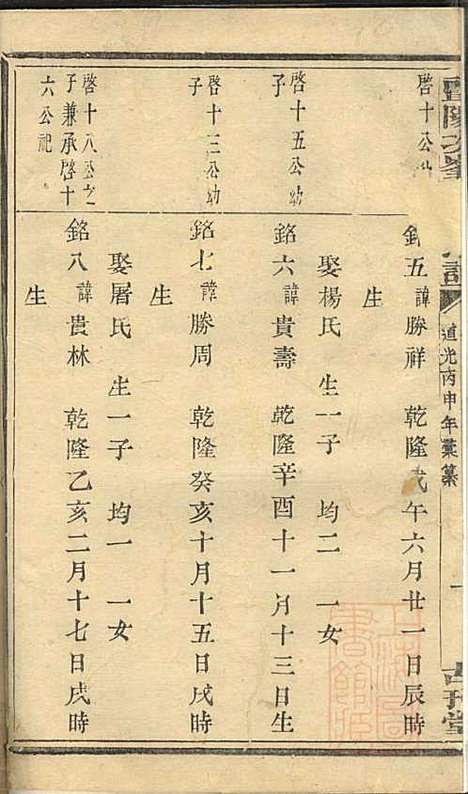 暨陽
道光丙申年彙纂
一
啓十公
銘五諱勝祥 乾隆戊午六月廿一日辰時
生
啓十五公幼
子
娶楊氏 生一子 均二 一女
銘六諱貴壽 乾隆辛酉十一月十三日生
啓十三公幼
子
銘七諱勝周 乾隆癸亥十月十五日戌時
生
啓十八公之
子兼承啓十
六公祀
娶屠氏 生一子 均一 一女
銘八諱貴林 乾隆乙亥二月十七日戌時
生